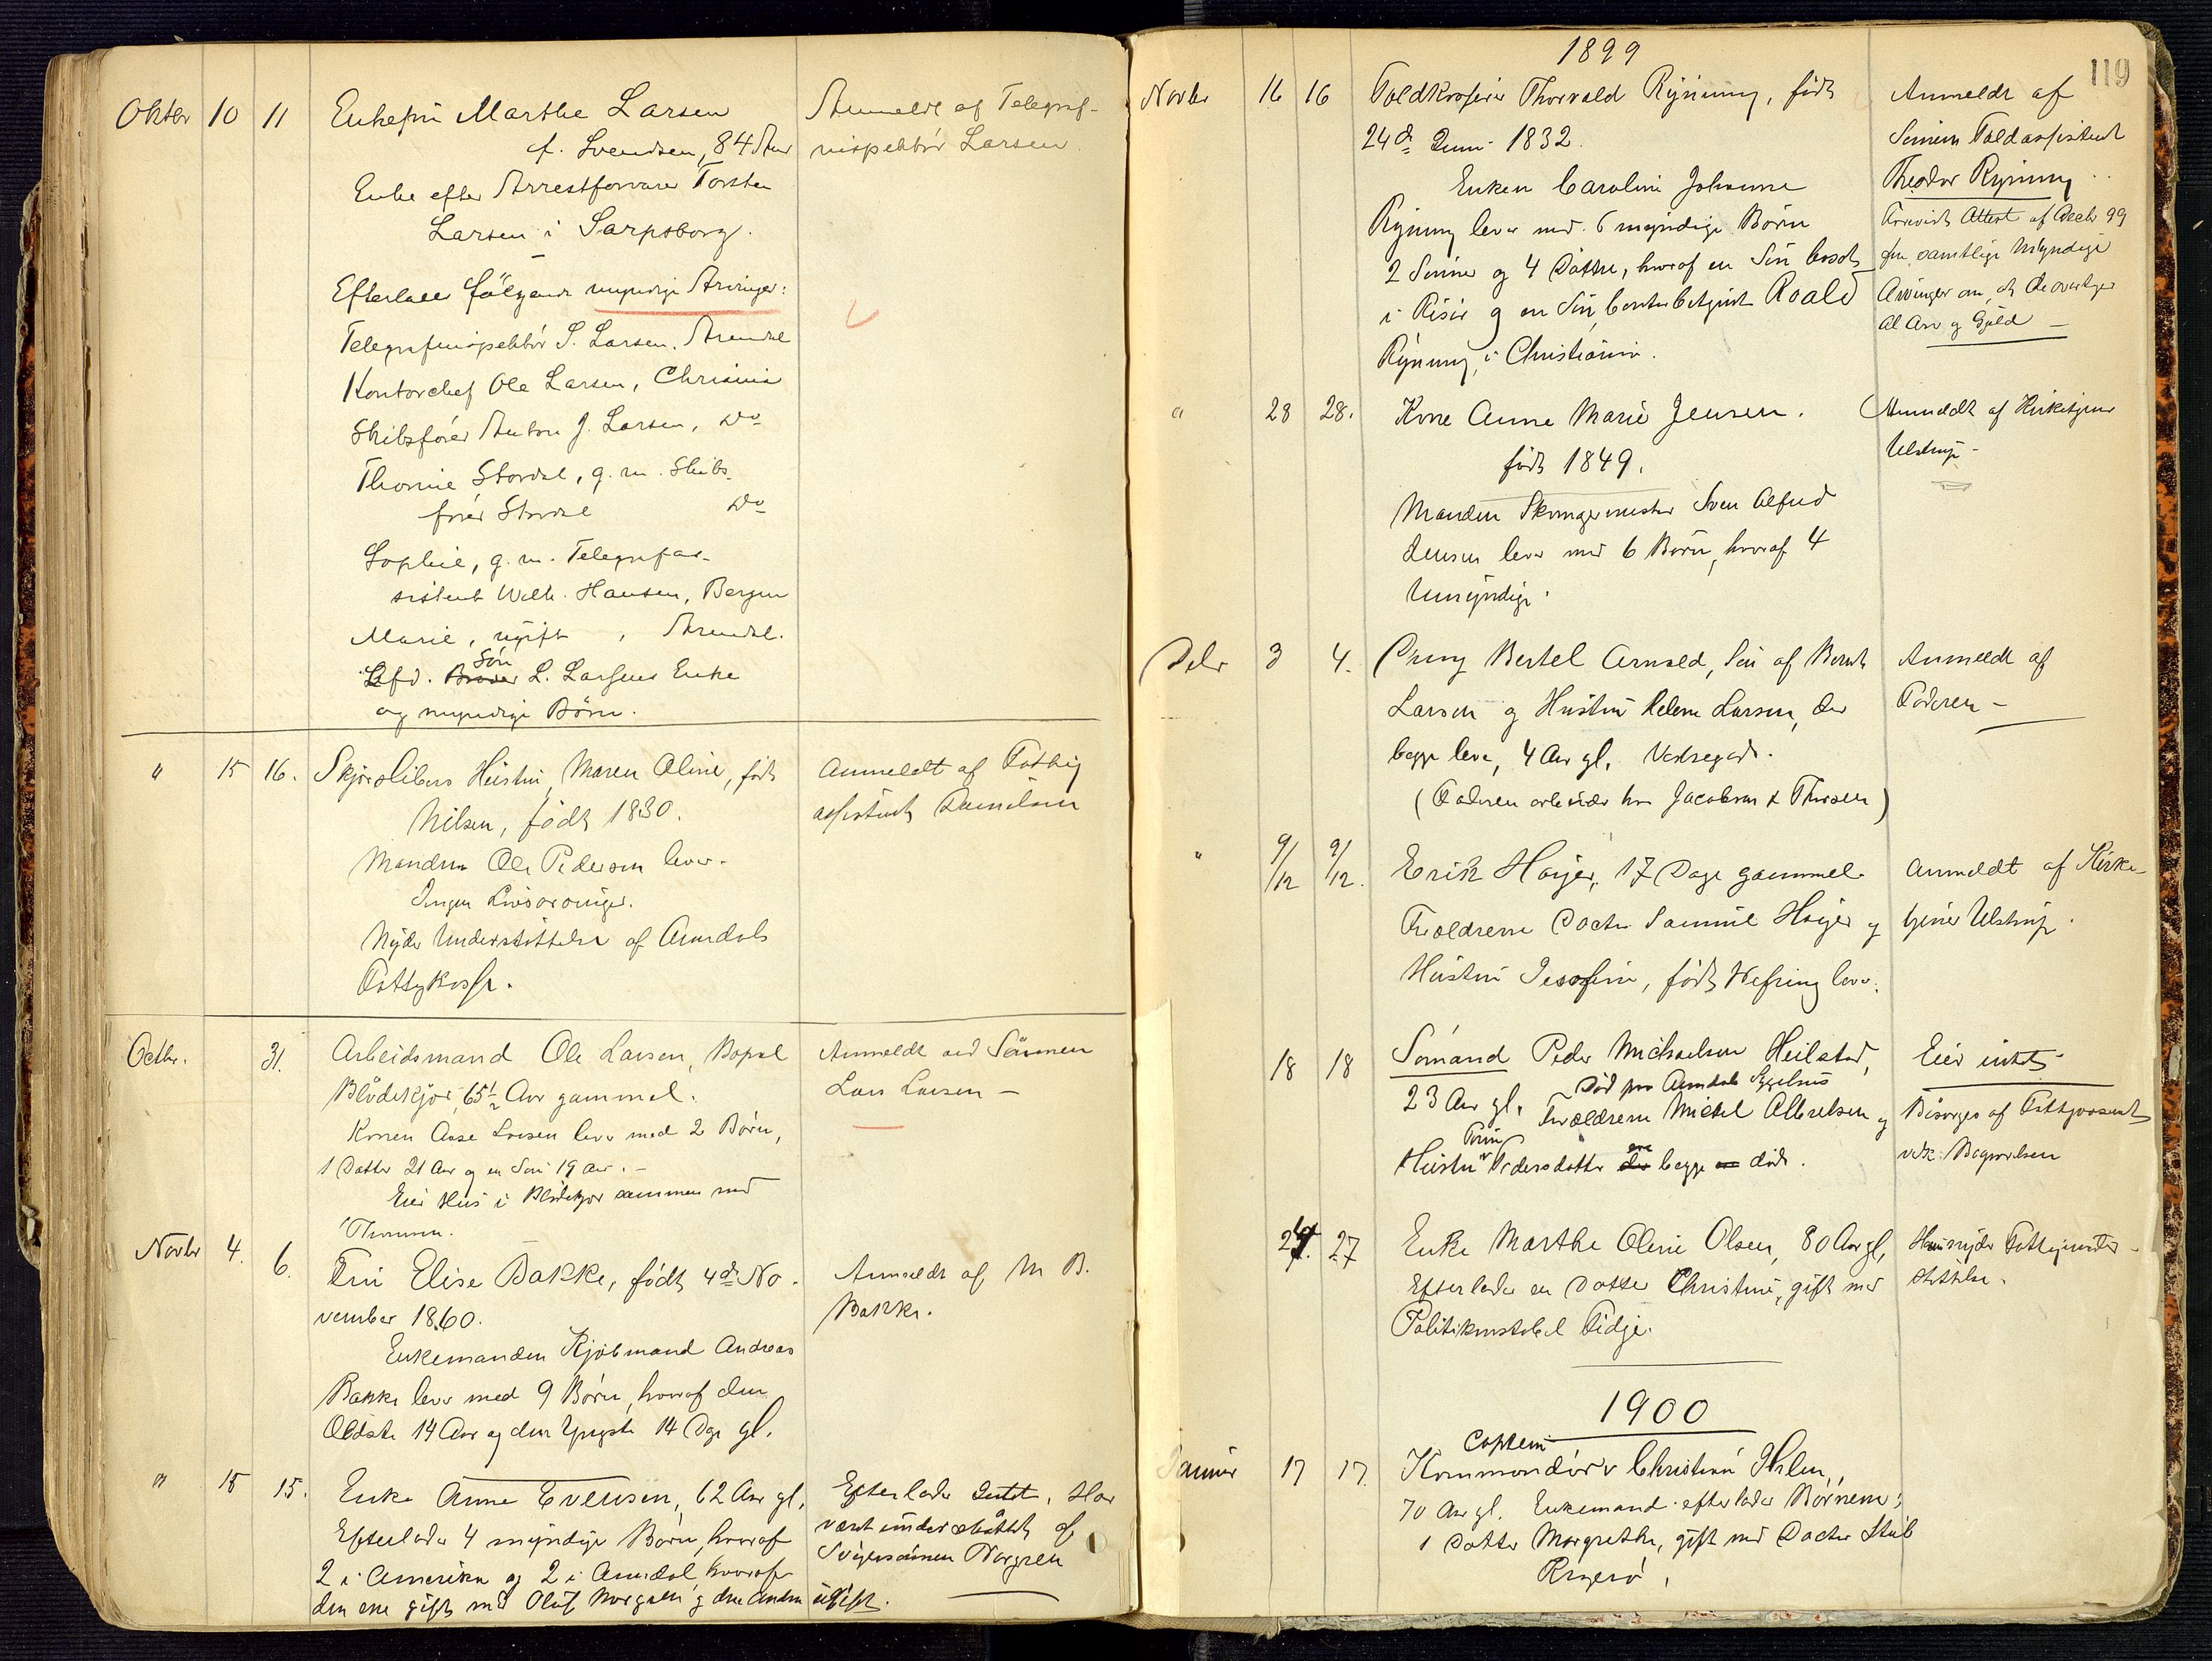 Oktbr 10 11 Enkefru Marthe Larsen
f. Svendsen, 84 Aar
Enke efter Arrestforvarer Torsten
Larsen i Sarpsborg.
Efterlader følgende myndige Arvinger:
Telegrafinspektør S. Larsen, Arendal
Kontorchef Ole Larsen, Chrania
Skibsfører Anton J. Larsen, Do
Thomine Stordal, g. m. Skibs-
fører Stordal Do
Sophie, g. m. Telegrafas-
sistent Wilh. Hansen, Bergen
Marie, ugift, Arendal.
Afd. Broder Søn L. Larsens Enke
og myndige Børn.
Anmeldt af Telegraf-
inspektør Larsen.
" 15 16. Hustru Maren Oline, født
Nilsen, født 1830.
Manden Ole Pedersen lever.
Ingen Livsarvinger.
Nyder Understøttelse af Arendals
Fattigkasse.
Anmeldt af Fattig
assistent Danielsen
Octbr. 31. Arbeidsmand Ole Larsen, Bopæl
Blødekjær, 65½ Aar gammel.
Konen Aase Larsen lever med 2 Børn,
1 Datter 21 Aar og en Søn 19 Aar. -
Eier Hus i Blødekjær sammen med
Anmeldt ved Sønnen
Lars Larsen -
Novbr 4. 6. Fru Elise Bakke, født 4de No-
vember 1860.
Enkemanden Kjøbmand Andreas
Bakke lever med 9 Børn, hvoraf den
Ældste 14 Aar og den Yngste 14 Dge gl.
Anmeldt af M B.
Bakke.
" 15 15. Enke Anne Evensen, 62 Aar gl.
Efterlader 4 myndige Børn, hvoraf
2 i Amerika og 2 i Arendal hvoraf
den ene gift med Oluf Norgren og den anden ugift.
Efterlader Intet. Har
været understøttet af
Svigersønnen Norgren
119
1899
Novbr 16 16 Toldkasserer Thorvald Rynning, født
24de Juni 1832.
Enken Caroline Johanne
Rynning lever med 6 myndige Børn
2 Sønner og 4 Døttre, hvoraf en Søn bosat
i Risør og en Søn, Contorbetjent Roald
Rynning, i Christiania.
Anmeldt af
Sønnen Toldassistent
Theodor Rynning
Forevist Attest af Decbr 99
fra samtlige Myndige
Arvinger om, at de overtager
al Arv og Gjeld -
" 28 28. Kone Anne Marie Jensen.
født 1849.
Manden Sven Alfred
Jensen lever med 6 Børn, hvoraf 4
Umyndige.
Anmeldt af Kirketjener
Ulstrup -
Debr 3 4. Conny Bertel Arnold, Søn af Bernt
Larsen og Hustru Helene Larsen, der
begge lever, 4 Aar gl.
(Faderen arbeider hos Jacobsen & Thorsen)
Anmeldt af
Faderen -
" 9/12 9/12. Erik Høyer, 17 Dage gammel.
Forældrene Doctor Samuel Høyer og
Hustru Josefine, født Wefring lever.
Anmeldt af Kirke-
tjener Ulstrup.
18 18 Sømand Peder Michaelsen Heilstad,
23 Aar gl. Død paa Arendals Sygehus
Forældrene Mikal Albretsen og
Hustru Pedersdatter ere begge døde.
Eier intet
Besørges af Fattigvæsenet
vdk. Begravelsen
24. 27 Enke Marthe Oline Olsen, 80 Aar gl,
Efterlader en Datter Christine, gift med
Politikonstabel Fidje.
Hun nyder Fattigunder-
støttelse.
1900
Januar 17 17. Kommandør Captein Christian Ihlen,
70 Aar gl. Enkemand efterlader Børnene:
1 Datter Margrethe, gift med Doctor Stub
Kragerø,